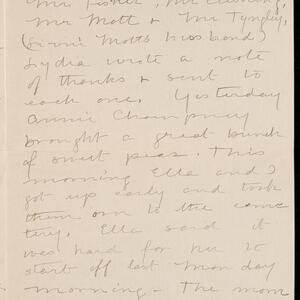 Mr. Fisher, Mr. Cushing,
Mr Mott & Mr Tyngley,
(Linnie Motts husband)
Lydia wrote a note
of thanks & sent to
each one. Yesterday
Annie Champney
brought a great bunch
of sweet peas. This
morning Ella and I
got up early and took
them over to the ceme
tery. Ella said it
was hard for her to
start off last Monday
morning. The mom